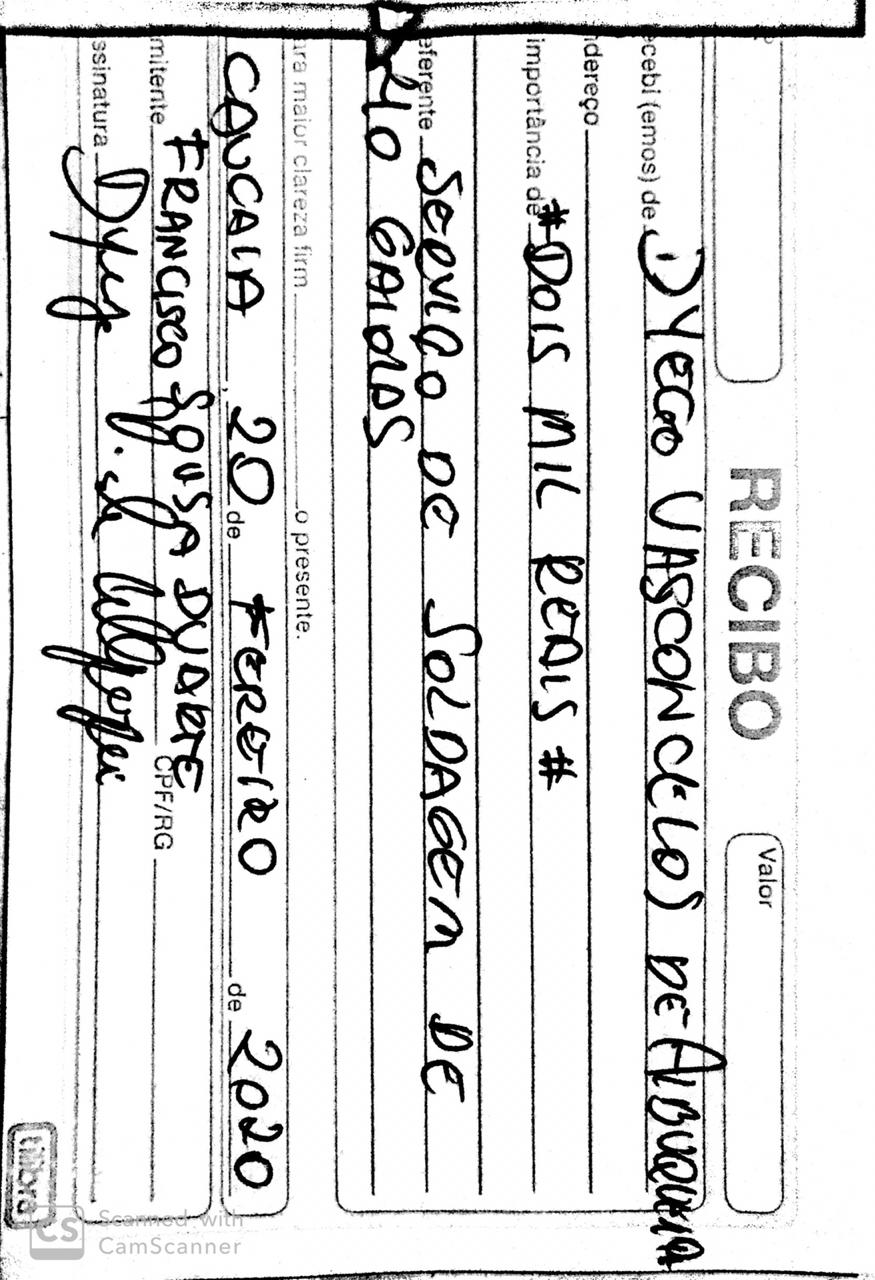 RECIBO
Valor
ecebi (emos) de DYEGO VASCONCELOS DE ALBUQUERQUE
ndereço
importância de #DOIS MIL REAIS #
eferente SERVIÇO DE SOLDAGEM DE
40 GAIOLAS
ara maior clareza firm o presente.
CAUCAIA, 20 de FEREIRO de 2020
mitente FRANCISCO SOUSA DUARTE CPF/RG
ssinatura Dyeg V. de
tilibra
CS Scanned with
CamScanner